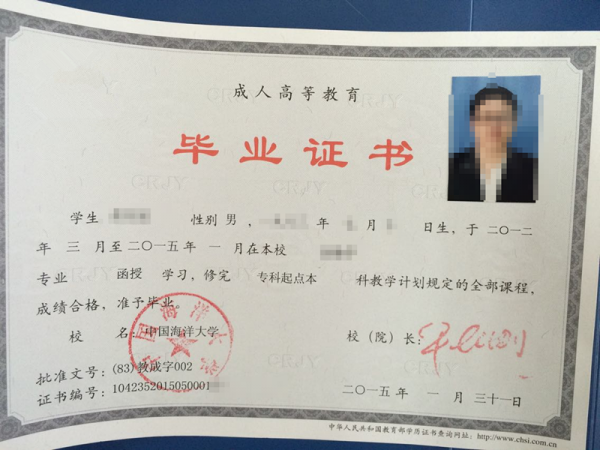 成人高等教育
毕业证书
学生 性别 男， 年 月 日生，于 二〇一二
年 三 月至二〇一五年 一 月在本校
专业 函授 学习，修完 专科起点本 科教学计划规定的全部课程，
成绩合格，准予毕业。
校 名：中国海洋大学 校（院）长：
批准文号：(83)教成字002
证书编号：1042352015050001 二〇一五年 一 月 三十一日
中华人民共和国教育部学历证书查询网址：http://www.chsi.com.cn